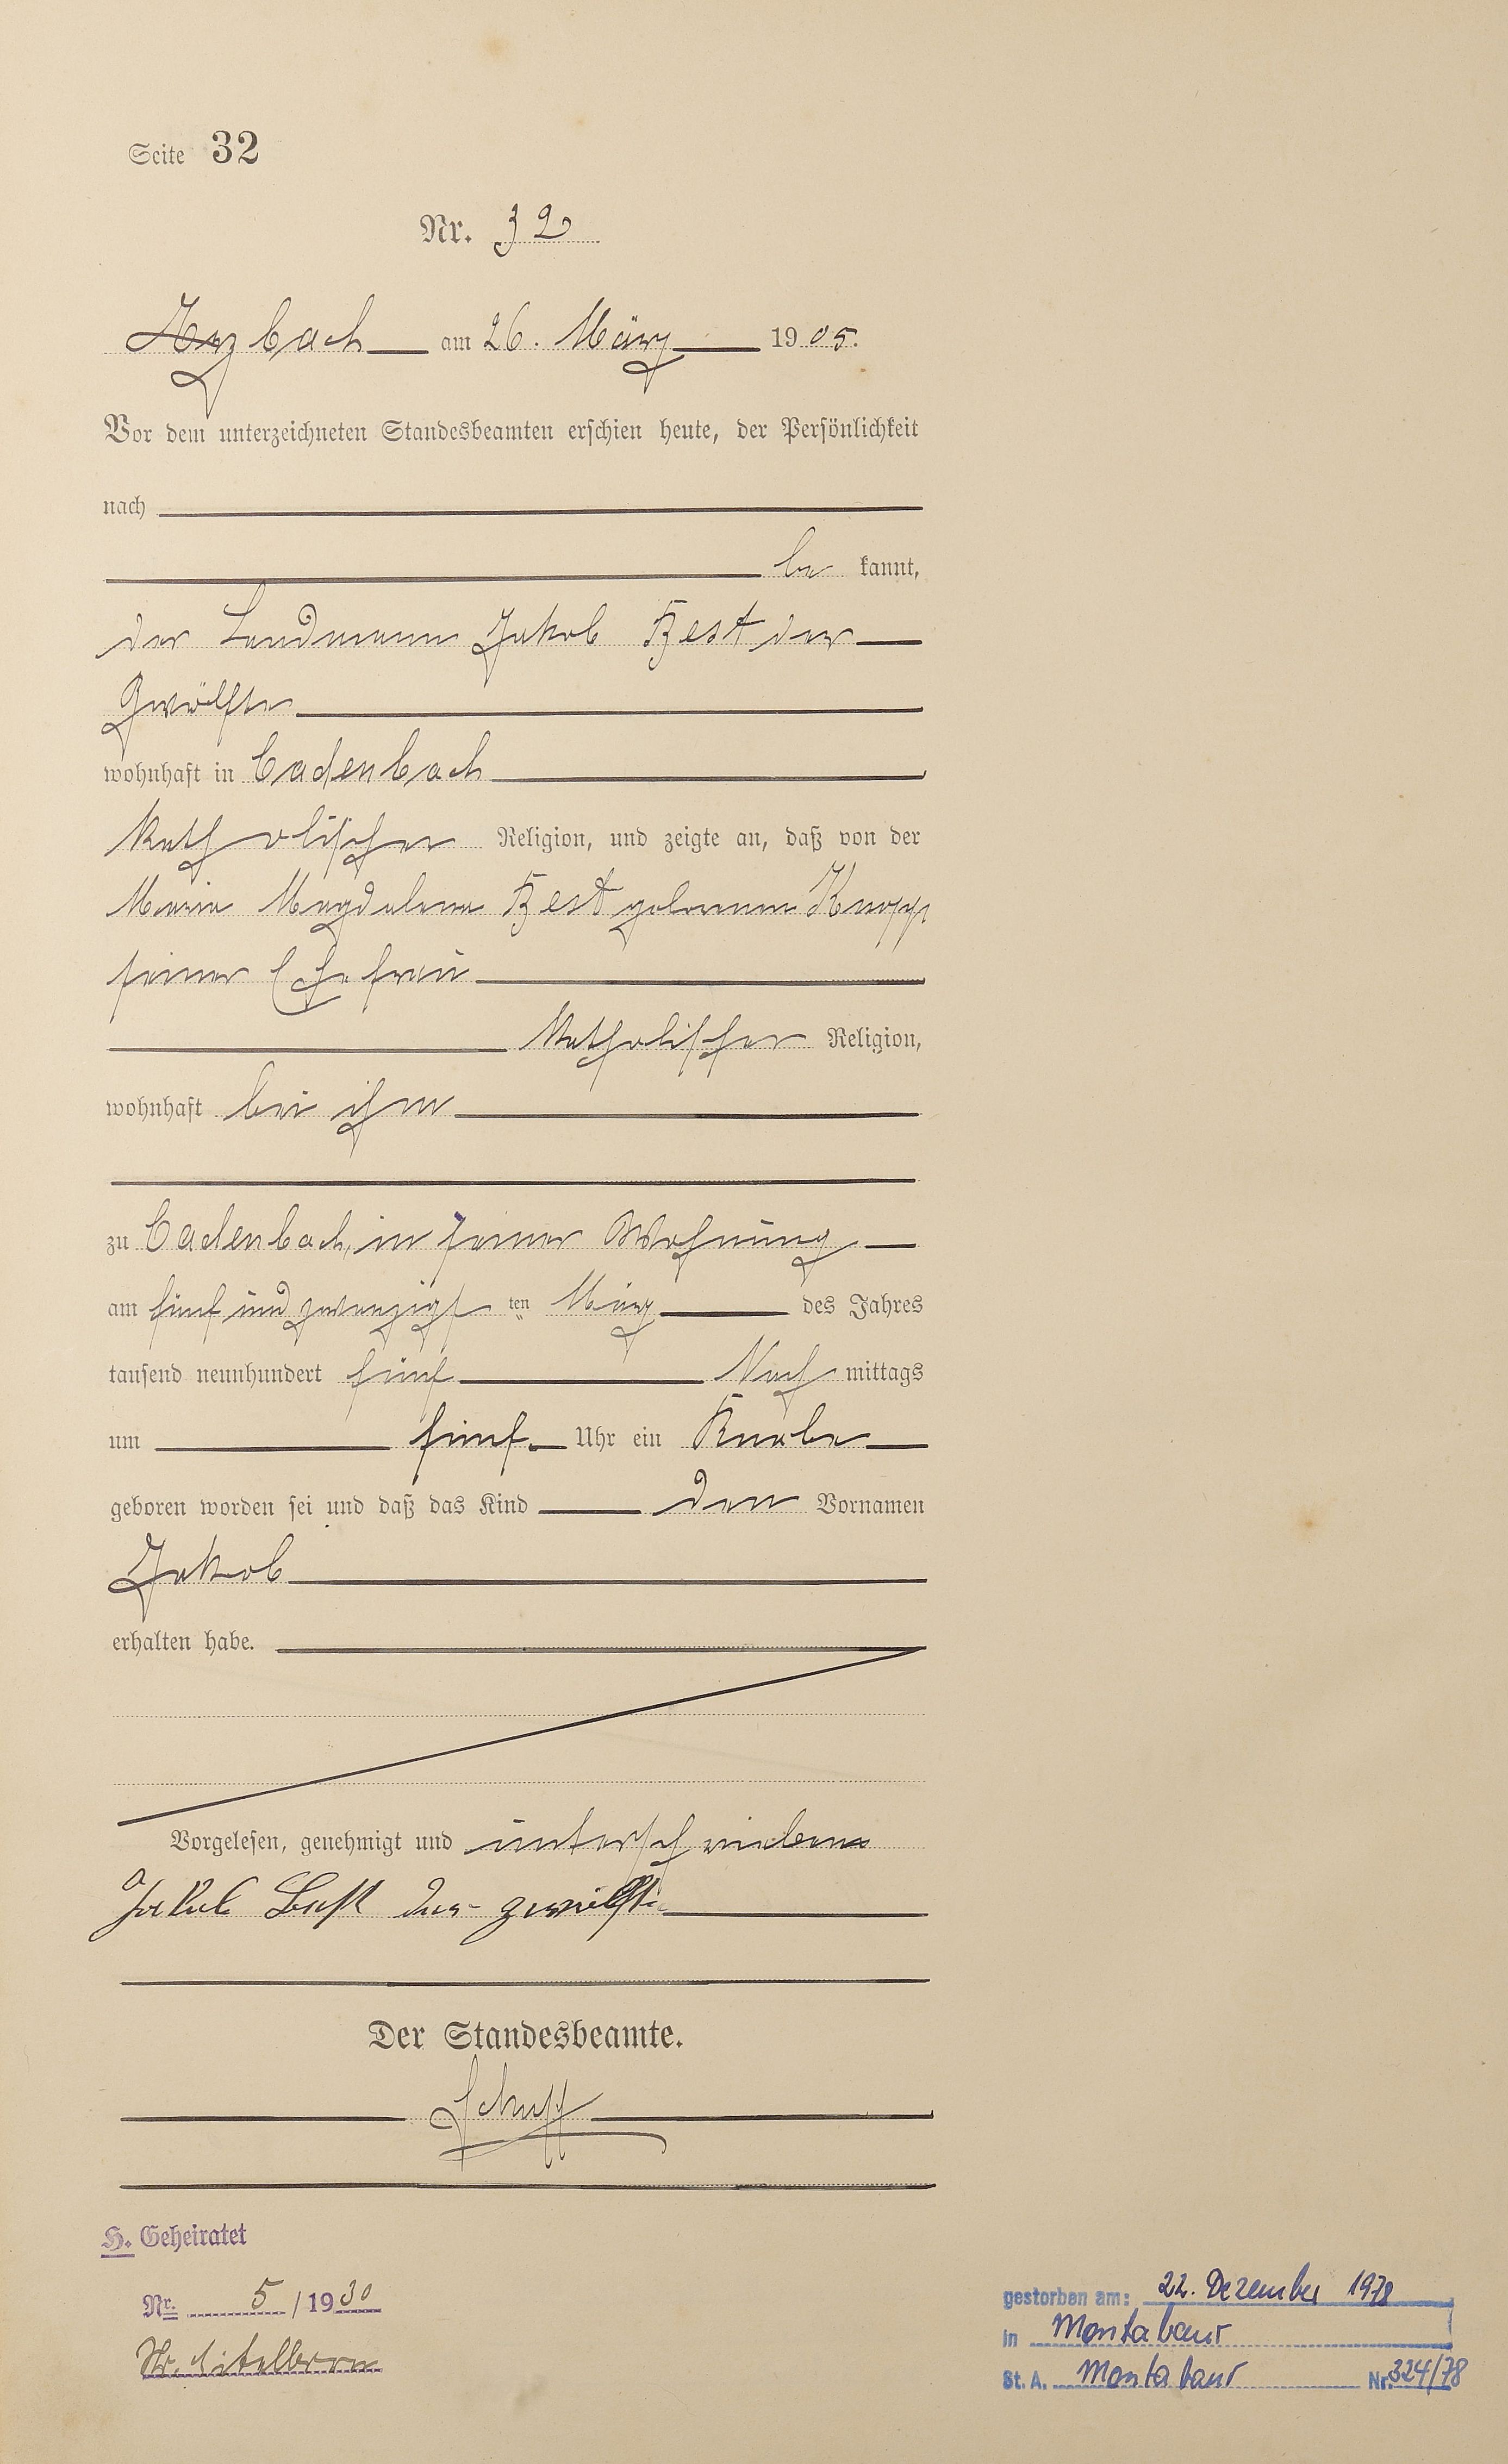 Seite 32
Nr. 32
Arzbach am 26. März 1905.
Vor dem unterzeichneten Standesbeamten erschien heute, der Persönlichkeit
nach
be kannt,
der Landmann Jakob Best der
Zwölfte
wohnhaft in Cadenbach
katholischer Religion, und zeigte an, daß von der
Maria Magdalena Best geborenen Knopp
seiner Ehefrau
katholischer Religion,
wohnhaft bei ihm
zu Cadenbach, in seiner Wohnung
am fünf und zwanzigsten März des Jahres
tausend neunhundert fünf Nach mittags
um fünf Uhr ein Knabe
geboren worden sei und daß das Kind den Vornamen
Jakob
erhalten habe.
Vorgelesen, genehmigt und unterschrieben
Jakob Best der zwölfte
Der Standesbeamte.
H. Geheiratet
Nr. 5/1930
gestorben am: 22. Dezember 1978
in Montabaur
St. A. Montabaur Nr. 324/78